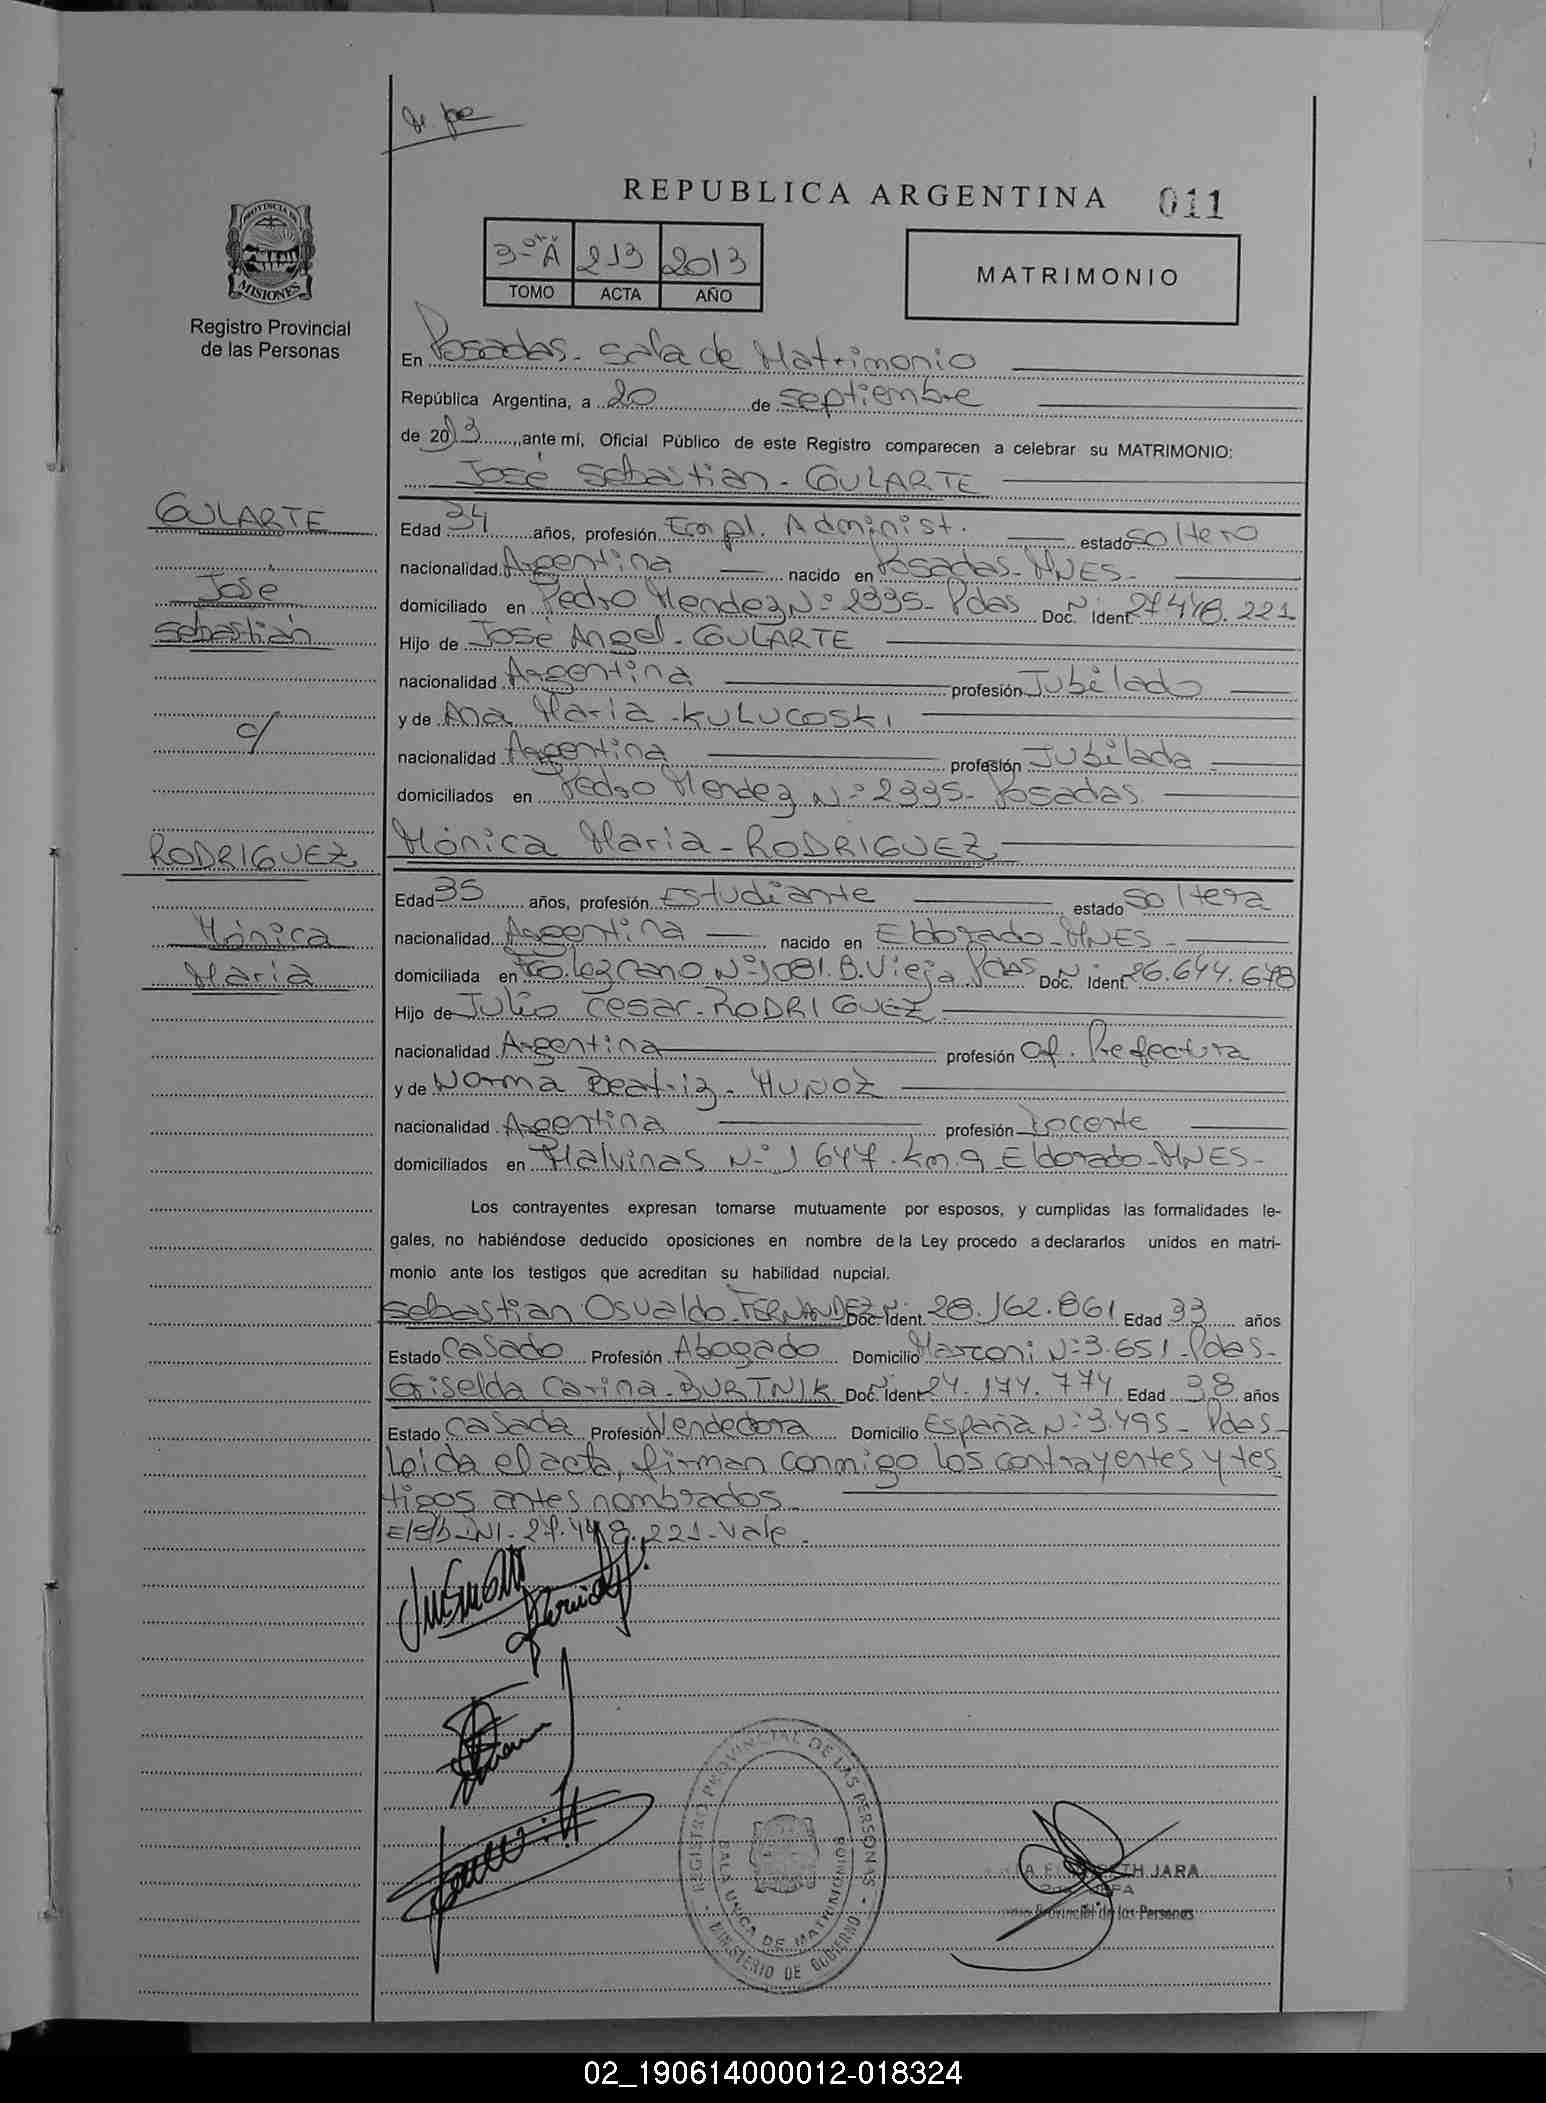 REPUBLICA ARGENTINA 011
3º A 213 2013
TOMO ACTA AÑO
MATRIMONIO
PROVINCIA DE
MISIONES
Registro Provincial
de las Personas
En Posadas - Sala de Matrimonio
República Argentina, a 20 de septiembre
de 2013, ante mí, Oficial Público de este Registro comparecen a celebrar su MATRIMONIO:
José Sebastian - GULARTE
Edad 34 años, profesión Empl. Administ. estado soltero
nacionalidad Argentina nacido en Posadas - MNES -
domiciliado en Pedro Mendez Nº 2335 - Pdas Doc. Ident. 27.448.221
Hijo de José Angel - GULARTE
nacionalidad Argentina profesión Jubilado
y de Ana Maria - KULUCOSKI
nacionalidad Argentina profesión Jubilada
domiciliados en Pedro Mendez Nº 2335 - Posadas
Mónica Maria - RODRIGUEZ
Edad 35 años, profesión Estudiante estado soltera
nacionalidad Argentina nacido en Eldorado - MNES -
domiciliada en Nº 1081. B. Vieja Pdas Doc. Ident. 26.644.678
Hijo de Julio Cesar - RODRIGUEZ
nacionalidad Argentina profesión Of. Prefectura
y de Norma Beatriz - MUNOZ
nacionalidad Argentina profesión Docente
domiciliados en Malvinas Nº 1647 - km. 9 Eldorado - MNES -
Los contrayentes expresan tomarse mutuamente por esposos, y cumplidas las formalidades le-
gales, no habiéndose deducido oposiciones en nombre de la Ley procedo a declararlos unidos en matri-
monio ante los testigos que acreditan su habilidad nupcial.
Sebastian Osvaldo - FERNANDEZ Doc. Ident. 28.162.861 Edad 33 años
Estado Casado Profesión Abogado Domicilio Marconi Nº 3.651 - Pdas -
Griselda Carina - BURTNIK Doc. Ident. 24.174.774 Edad 38 años
Estado Casada Profesión Vendedora Domicilio España Nº 3.495 - Pdas -
Leida el acta, firman conmigo los contrayentes y tes
tigos antes nombrados
E/S/b - DNI - 27.448.221 - Vale.
GULARTE
Jose
Sebastián
c/
RODRIGUEZ
Mónica
Maria
REGISTRO PROVINCIAL DE LAS PERSONAS
SALA UNICA DE MATRIMONIOS
MINISTERIO DE GOBIERNO
JARA
Provincial de las Personas
02_190614000012-018324